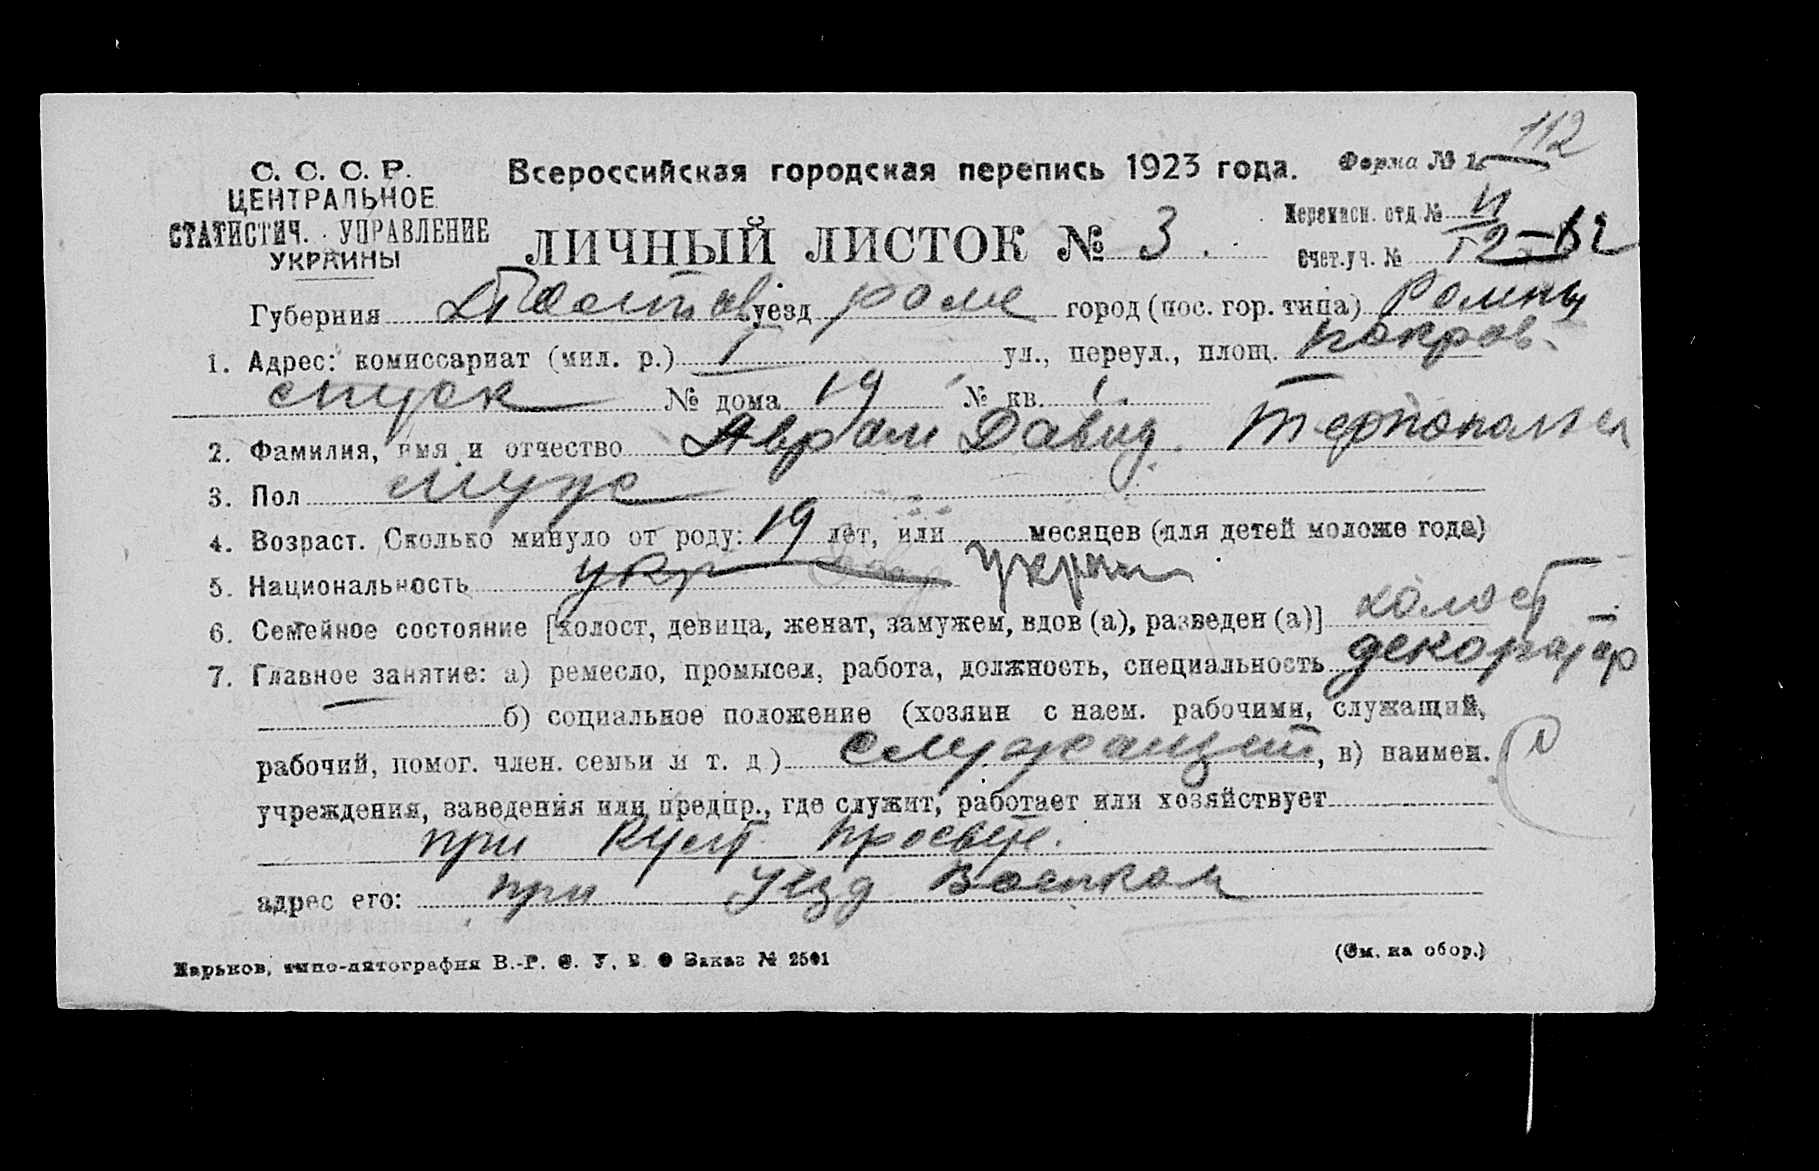 112
С. С. С. Р.
ЦЕНТРАЛЬНОЕ
СТАТИСТИЧ. УПРАВЛЕНИЕ
УКРАИНЫ
Всероссийская городская перепись 1923 года.
Форма № 1.
ЛИЧНЫЙ ЛИСТОК № 3.
Переписн. отд №
Счет.уч. №
Губерния уезд роме город (пос. гор. типа) Ромны
1. Адрес: комиссариат (мил. р.) I ул., переул., площ. покров.
спуск № дома 19 № кв. 1.
2. Фамилия, имя и отчество Аврам Давид.
3. Пол муж
4. Возраст. Сколько минуло от роду: 19 лет, или месяцев (для детей моложе года)
5. Национальность укр
6. Семейное состояние [холост, девица, женат, замужем, вдов (а), разведен (а)] холост
7. Главное занятие: а) ремесло, промысел, работа, должность, специальность декоратор
б) социальное положение (хозяин с наем. рабочими, служащий,
рабочий, помог. член. семьи и т. д.) служащий, в) наимен.
учреждения, заведения или предпр., где служит, работает или хозяйствует
при Культ просвет.
адрес его: при Уезд Военком
Харьков, типо-литография В.-Р. С. У. В. Заказ № 2501
(См. на обор.)